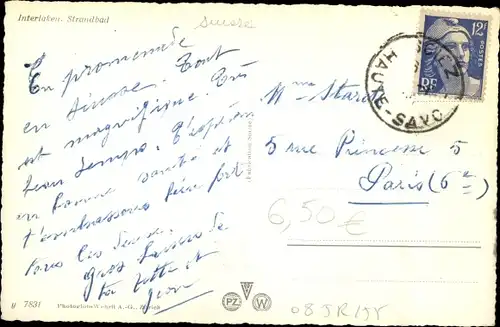 Interlaken. Strandbad
suisse
En promenade
en Suisse. Tout
est magnifique. Très
beau temps. J'espère
en bonne santé et
t'embrassons bien fort
tous les deux.
Gros baisers de
ta
12F
POSTES
RF
HAUTE-SAVOIE
Mme
5 rue Princesse 5
Paris (6e)
6,50€
g 7831
Photoglob-Wehrli A.-G., Zürich
PZ W
08JR158